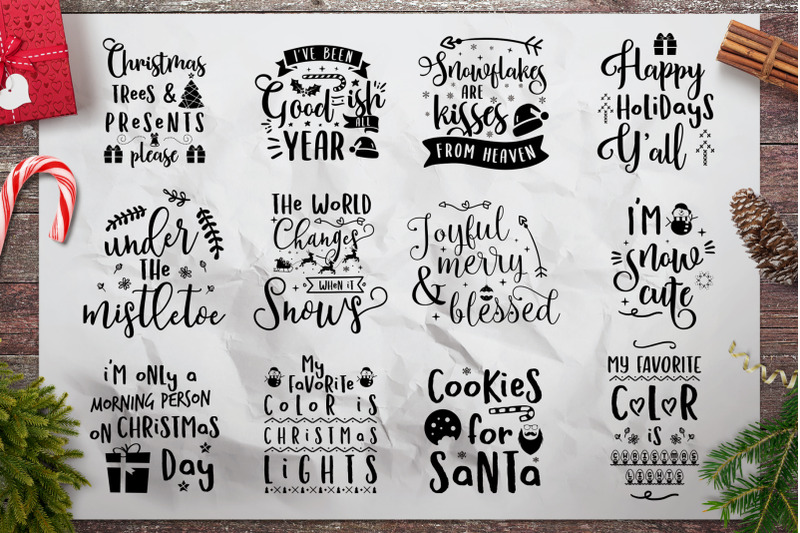 Christmas
TREES &
PRESENTS
please
I'VE BEEN
Goodish
ALL
YEAR
Snowflakes
ARE
kisses
FROM HEAVEN
Happy
HOLIDAYS
Y'all
under
THE
mistletoe
THE WORLD
Changes
WHEN it
Snows
Joyful
merry
& blessed
I'M
Snow
cute
i'M ONLY a
MORNING PERSON
ON CHRISTMas
Day
My
FaVORiTE
COLOR iS
CHRiSTMaS
LiGHTS
COOKiES
for
SaNTa
MY FAVORITE
COLOR
iS
CHRISTMAS
LIGHTS